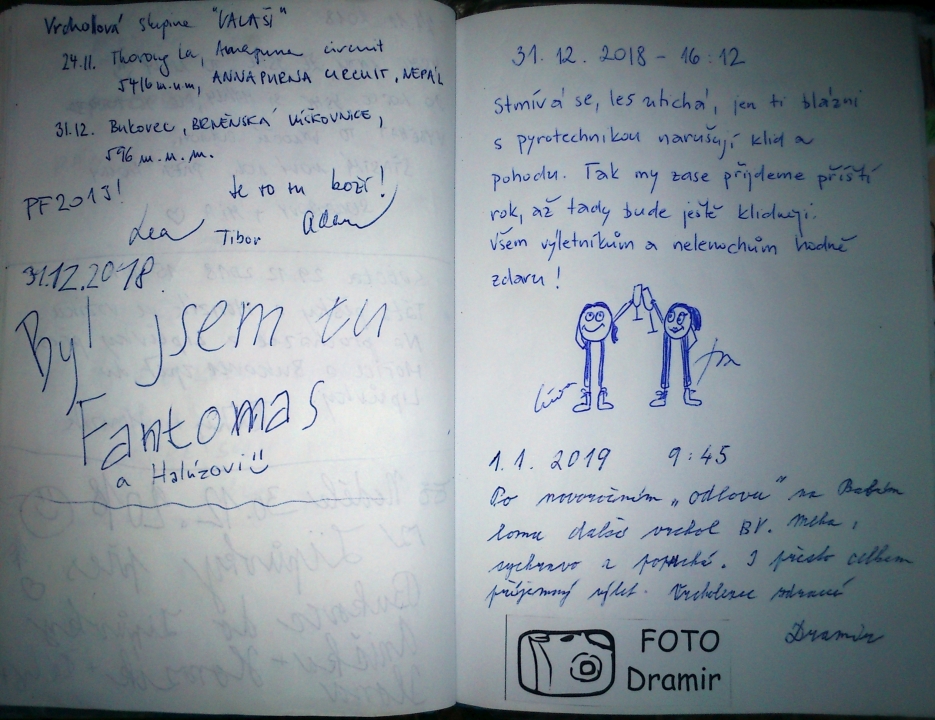 Vrcholová skupina "VALAŠI"
24.11. Thorong La, Annapurna circuit
5416 m.n.m, ANNAPURNA CIRCUIT, NEPÁL
31.12. Bukovec, BRNĚNSKÁ VÍŠKOVNICE,
596 m.n.m.
PF2019! Je to tu boží!
Lea Tibor Adam
31.12.2018
Byl jsem tu
Fantomas
a Halúzovi
31. 12. 2018 - 16:12
Stmívá se, les utichá, jen ti blázni
s pyrotechnikou narušují klid a
pohodu. Tak my zase přijdeme příští
rok, až tady bude ještě klidněji.
Všem výletníkům a nelenochům hodně
zdaru!
1.1. 2019 9:45
Po novoročním „odlovu" na Babím
lomu další vrchol BV. Mlha,
sychravo a  I přesto celkem
příjemný výlet. Vrcholence zdraví
Dramir
FOTO
Dramir